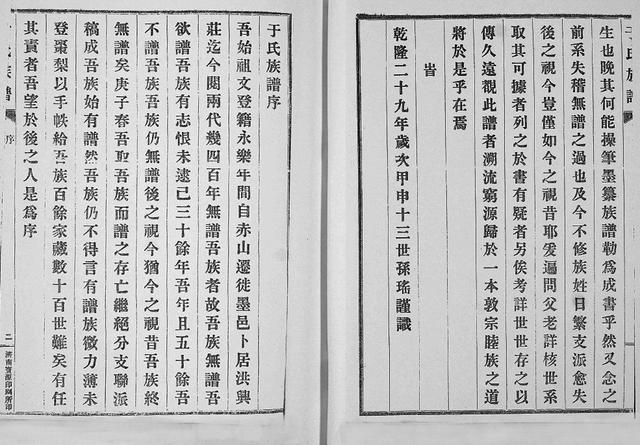 生也晚其何能操筆墨纂族譜勒爲成書乎然又念之
前系失稽無譜之過也及今不修族姓日繁支派愈失
後之視今豈僅如今之視昔耶爰遍問父老詳核世系
取其可據者列之於書有疑者另俟考詳世世存之以
傳久遠觀此譜者溯流窮源歸於一本敦宗睦族之道
將於是乎在焉
旹
乾隆二十九年歲次甲申十三世孫瑤謹識
于氏族譜
于氏族譜序
吾始祖文登籍永樂年間自赤山遷徙墨邑卜居洪興
莊迄今閱兩代幾四百年無譜吾族者故吾族無譜吾
欲譜吾族有志恨未逮已三十餘年吾年且五十餘吾
不譜吾族吾族仍無譜後之視今猶今之視昔吾族終
無譜矣庚子春吾聖吾族而譜之存亡繼絕分支聯派
稿成吾族始有譜然吾族仍不得言有譜族微力薄未
登棗梨以手帙給吾族百餘家藏數十百世難矣有任
其責者吾望於後之人是爲序
氏族譜
序
二
濟南資源印刷所印